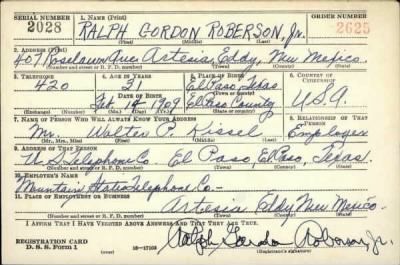 SERIAL NUMBER 1. NAME (Print) ORDER NUMBER
2028 RALPH GORDON ROBERSON, Jr. 2625
(First) (Middle) (Last)
2. ADDRESS (Print)
407 Roselawn Ave. Artesia, Eddy, New Mexico.
(Number and street or R. F. D. number) (Town) (County) (State)
3. TELEPHONE 4. AGE IN YEARS 5. PLACE OF BIRTH 6. COUNTRY OF CITIZENSHIP
420 El Paso, Texas
DATE OF BIRTH
Feb. 14 1909 El Paso County U.S.A.
(Exchange) (Number) (Mo.) (Day) (Yr.) (State or country)
7. NAME OF PERSON WHO WILL ALWAYS KNOW YOUR ADDRESS 8. RELATIONSHIP OF THAT PERSON
Mr. Walter P. Kissel Employer
(Mr., Mrs., Miss) (First) (Middle) (Last)
9. ADDRESS OF THAT PERSON
Telephone Co. El Paso El Paso, Texas.
(Number and street or R. F. D. number) (Town) (County) (State)
10. EMPLOYER'S NAME
Mountain States Telephone Co.—
11. PLACE OF EMPLOYMENT OR BUSINESS
Artesia Eddy New Mexico.
(Number and street or R. F. D. number) (Town) (County) (State)
I AFFIRM THAT I HAVE VERIFIED ABOVE ANSWERS AND THAT THEY ARE TRUE.
REGISTRATION CARD
D. S. S. FORM 1 16—17105 Ralph Gordon Roberson Jr.
(Registrant's signature)